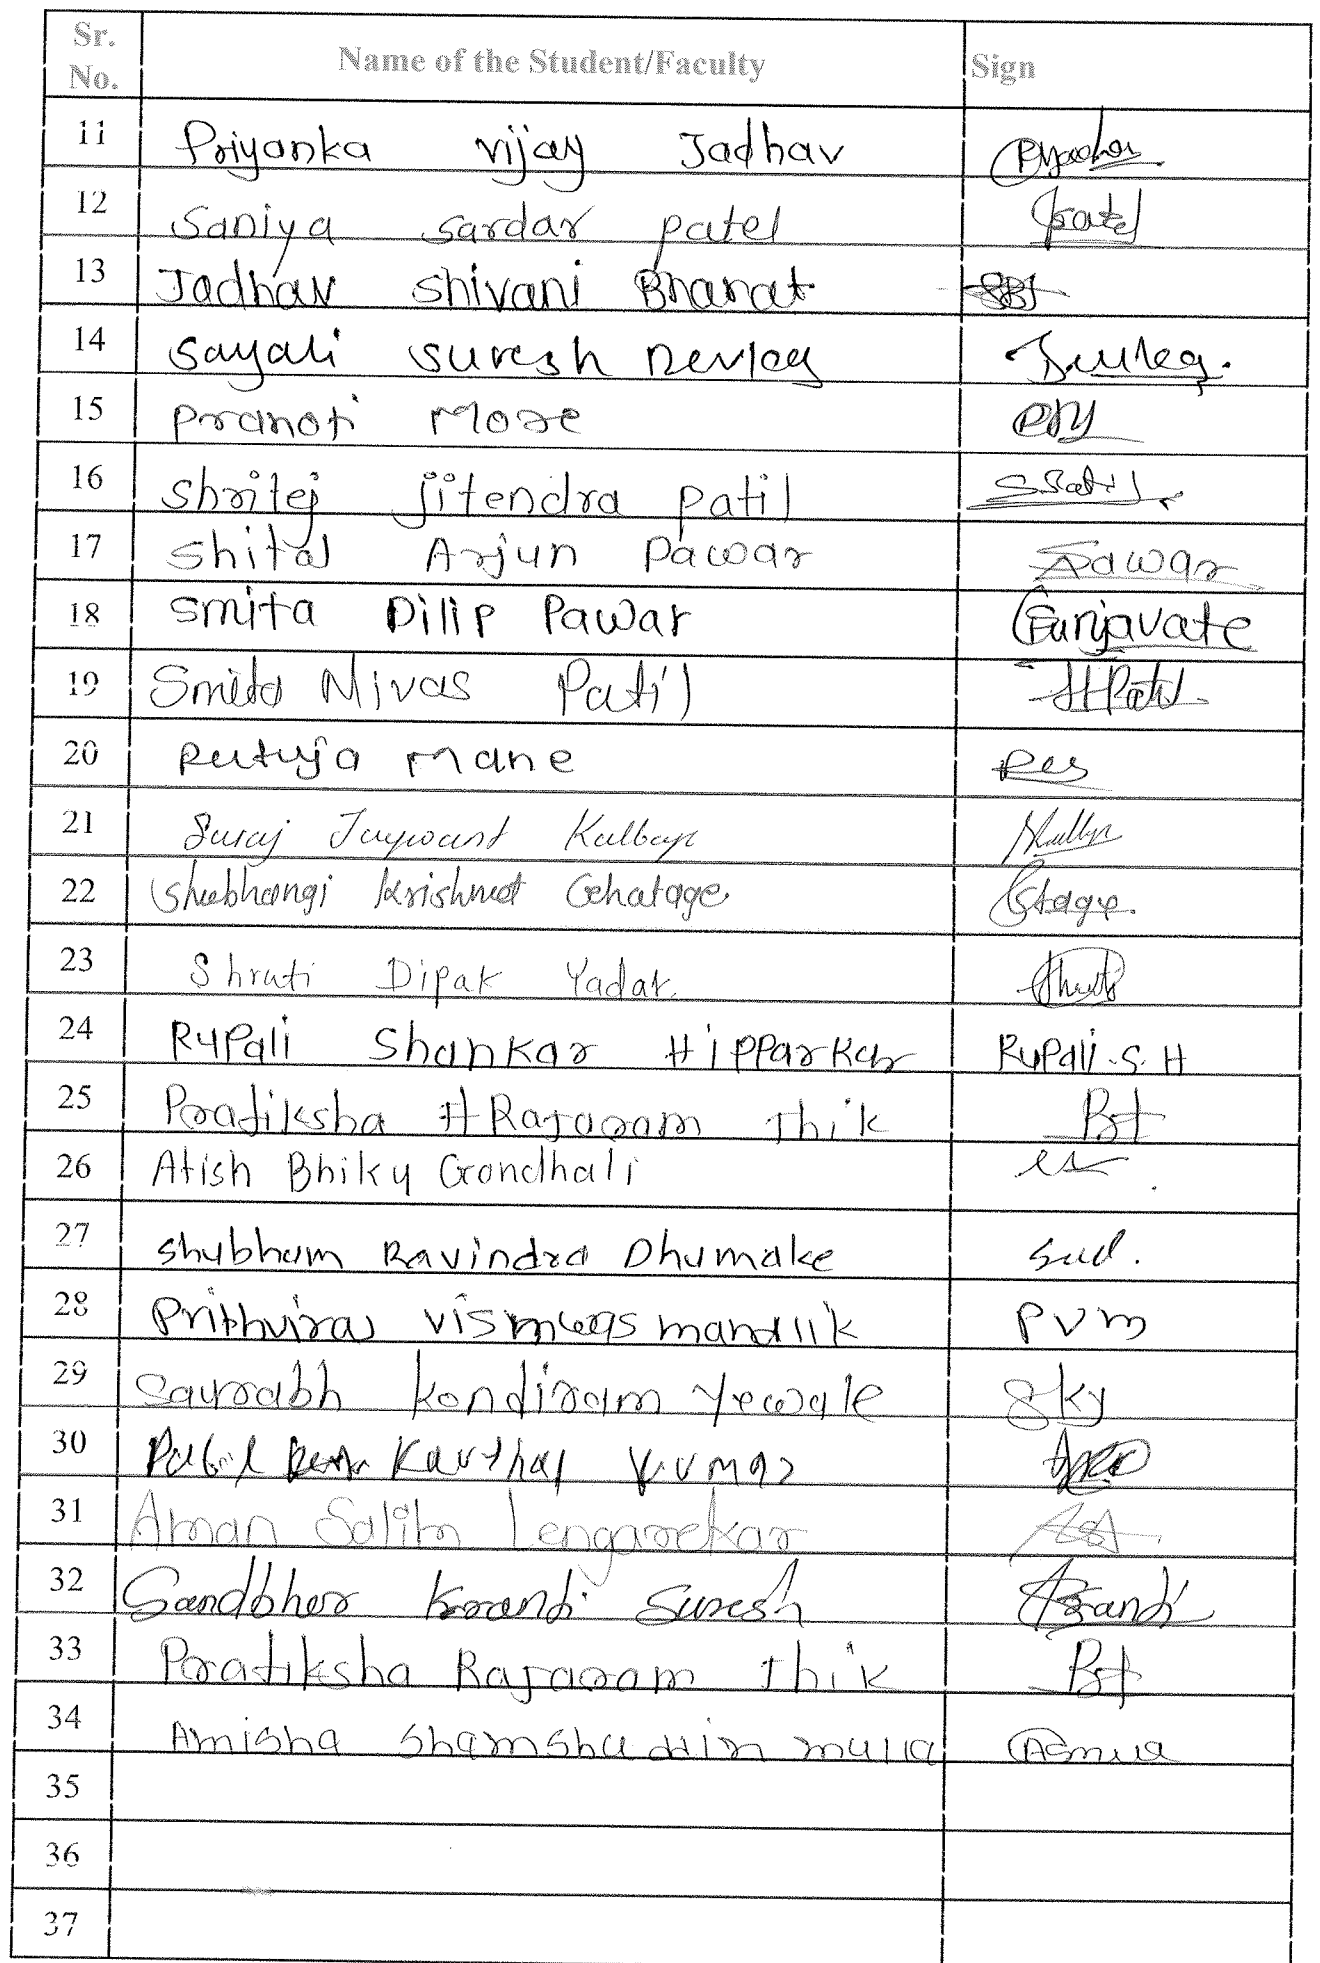 Sr. No. Name of the Student/Faculty Sign
11 Priyanka vijay Jadhav
12 Saniya sardar patel patel
13 Jadhav Shivani Bharat SBJ
14 Sayali suresh Devleg
15 Pranoti More
16 Shritej jitendra patil SPatil
17 Shital Arjun Pawar Pawar
18 Smita Dilip Pawar Gunjavate
19 Smita Nivas Patil Patil
20 Rutuja Mane
21 Suraj Jaywant
22 Shubhangi Krishnat Ghatage
23 Shruti Dipak Yadav Shruti
24 Rupali Shankar Hipparkar Rupali.S.H
25 Pratiksha Rajaram Thik Prt
26 Atish Bhiku Gondhali
27 Shubham Ravindra Dhumake
28 Prithviraj mandlik PVM
29 Saurabh kondiram Yewale SKY
30
31 Aman Salim Lengarekar
32 Sandbhor Kranti Suresh Kranti
33 Pratiksha Rajaram Thik Prt
34 Amisha Shamshuddin mulla
35
36
37